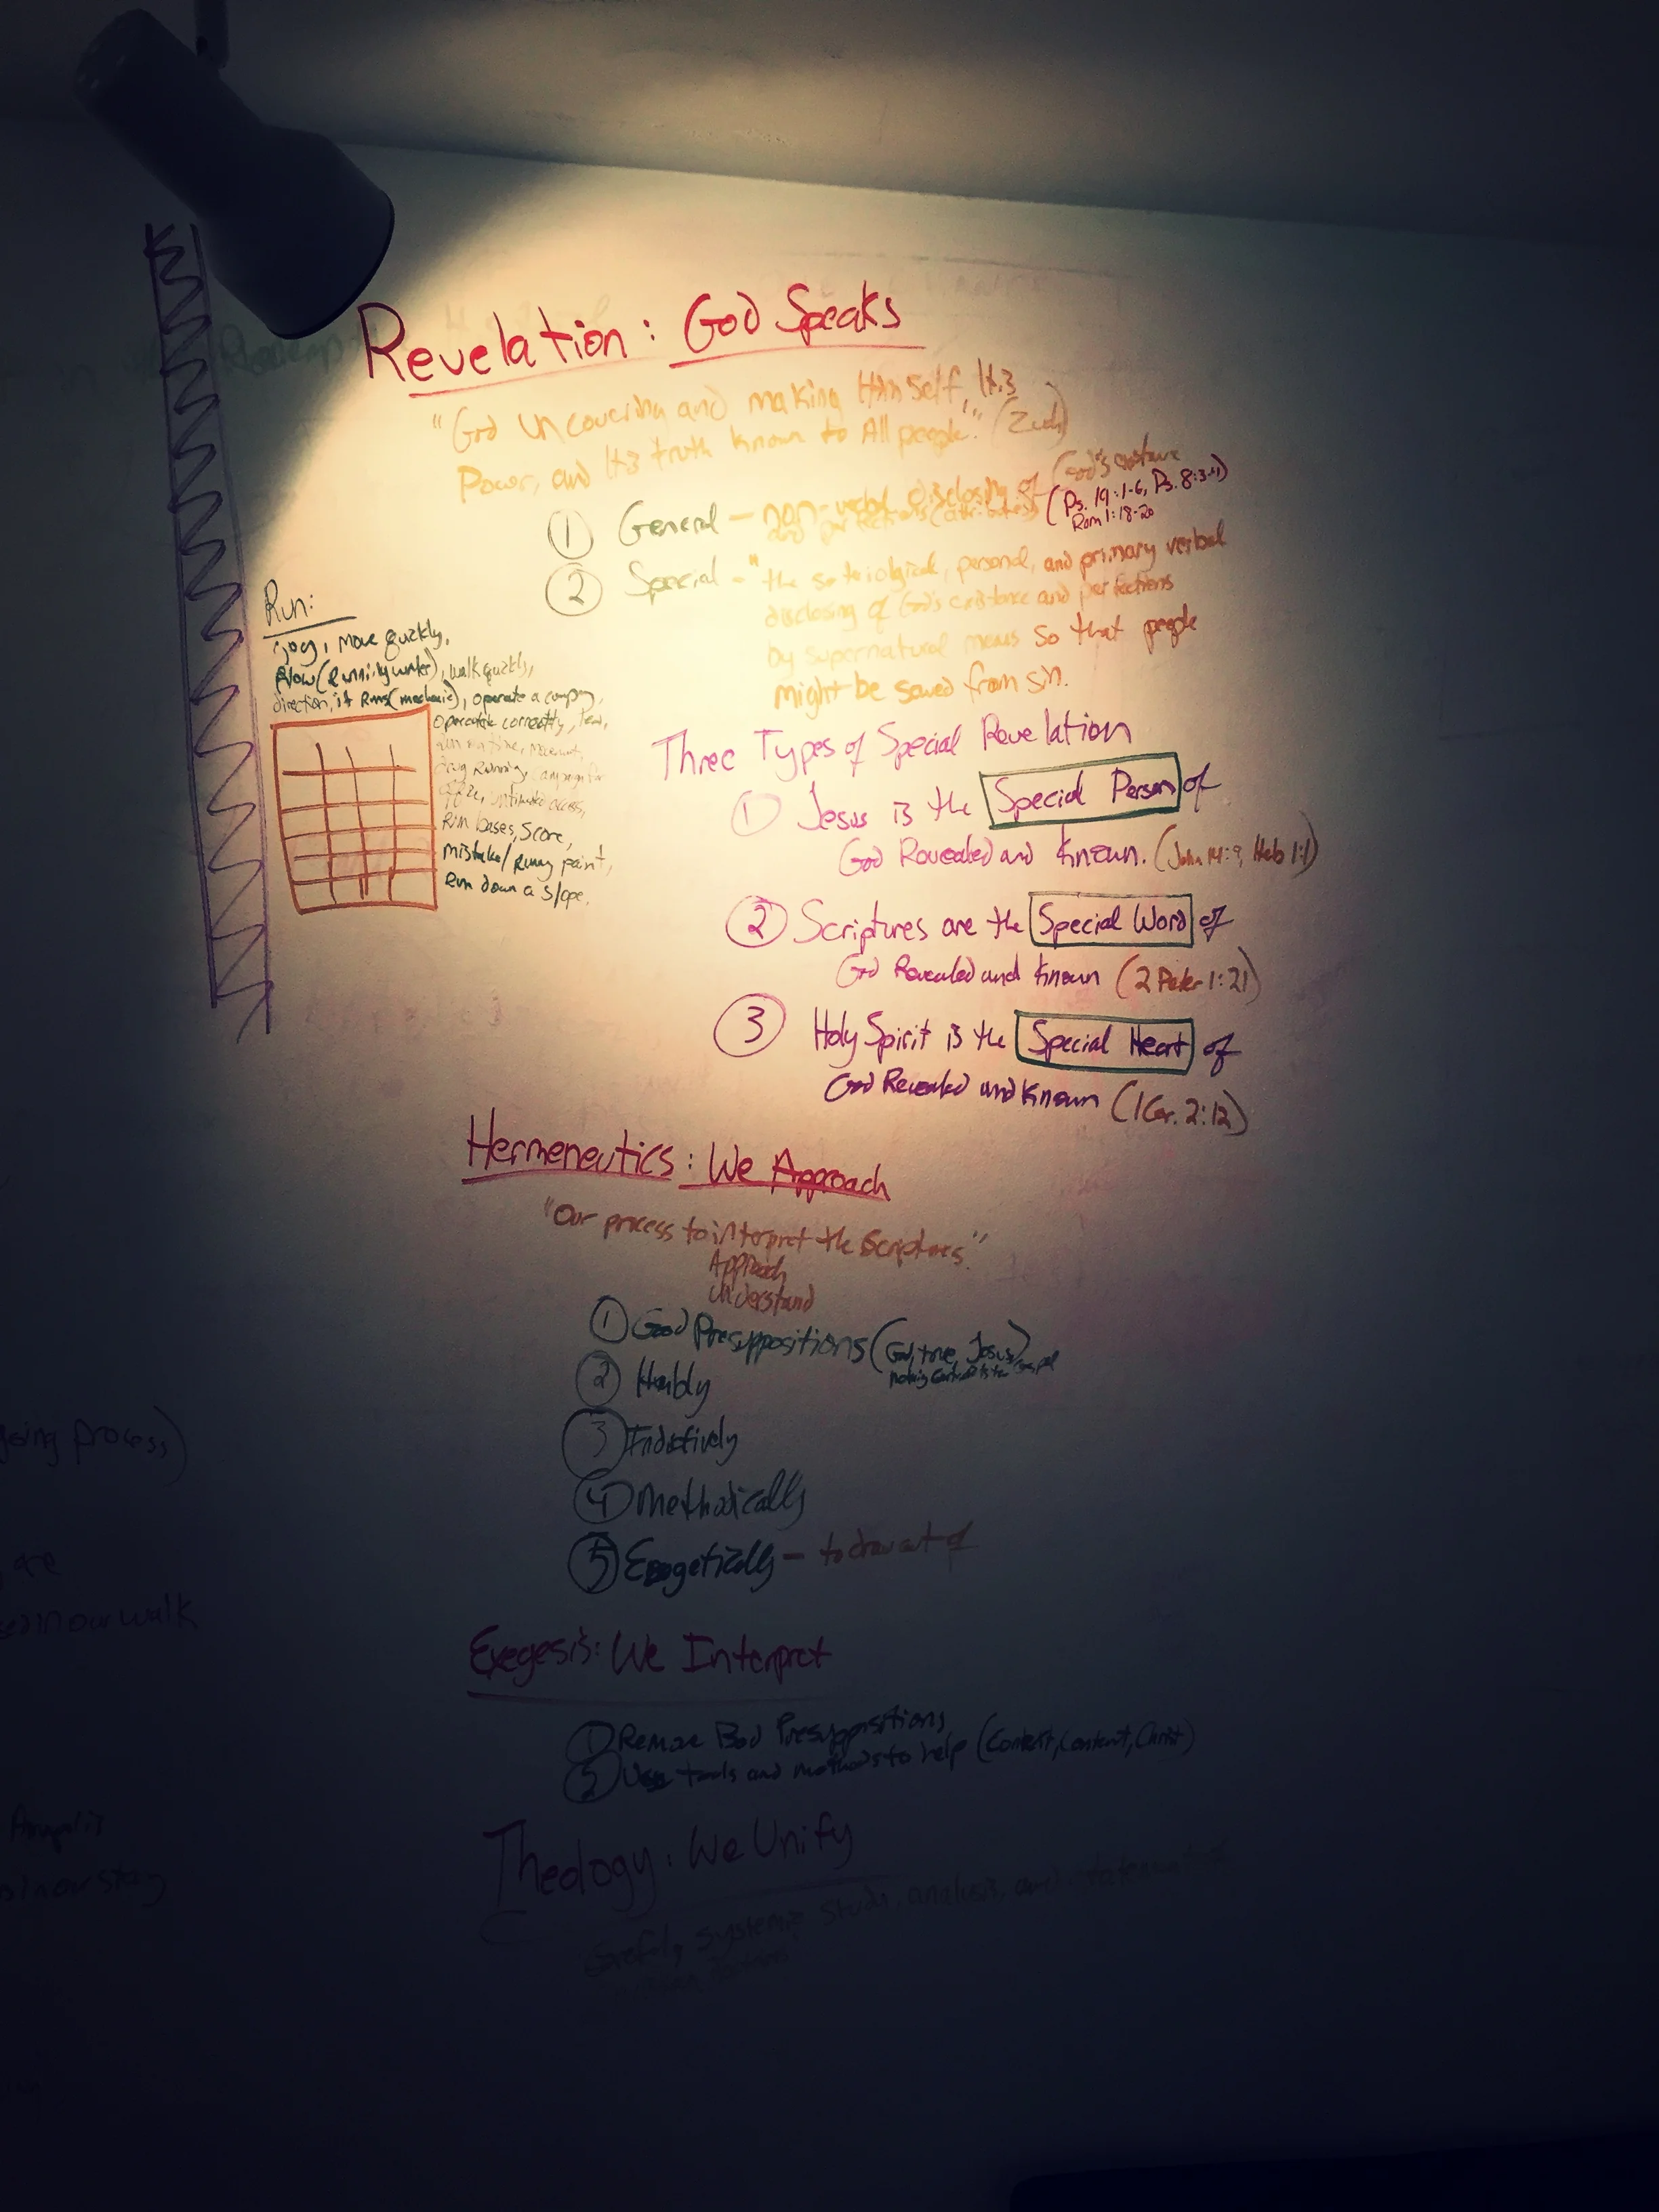 Revelation: God Speaks
"God uncovering and making Himself, His
Power, and His truth known to All people."
① General - non-verbal disclosing of God's existence
and perfections (attributes) (Ps. 19:1-6, Ps. 8:3-4)
Rom 1:18-20
② Special - "the soteriological, personal, and primary verbal
disclosing of God's existence and perfections
by supernatural means so that people
might be saved from sin.
Run:
jog, move quickly,
flow (running water), walk quickly,
direction, it Runs (mechanic), operate a company,
operate correctly,
drug Running, campaign for
office, unlimited access,
Run bases, Score,
mistake/runny paint,
Run down a slope.
Three Types of Special Revelation
① Jesus is the Special Person of
God Revealed and Known. (John 14:9, Heb 1:1)
② Scriptures are the Special Word of
God Revealed and Known (2 Peter 1:21)
③ Holy Spirit is the Special Heart of
God Revealed and Known (1 Cor. 2:12)
Hermeneutics: We Approach
"Our process to interpret the Scriptures."
Approach
Understand
① Good Presuppositions (God, true, Jesus)
② Humbly
③ Inductively
④ Methodically
⑤ Exegetically - to draw out of
Exegesis: We Interpret
① Remove Bad Presuppositions
② Use tools and methods to help (Context, Content, Christ)
Theology: We Unify
systemic study, analysis, and statement
going process)
are
now walk